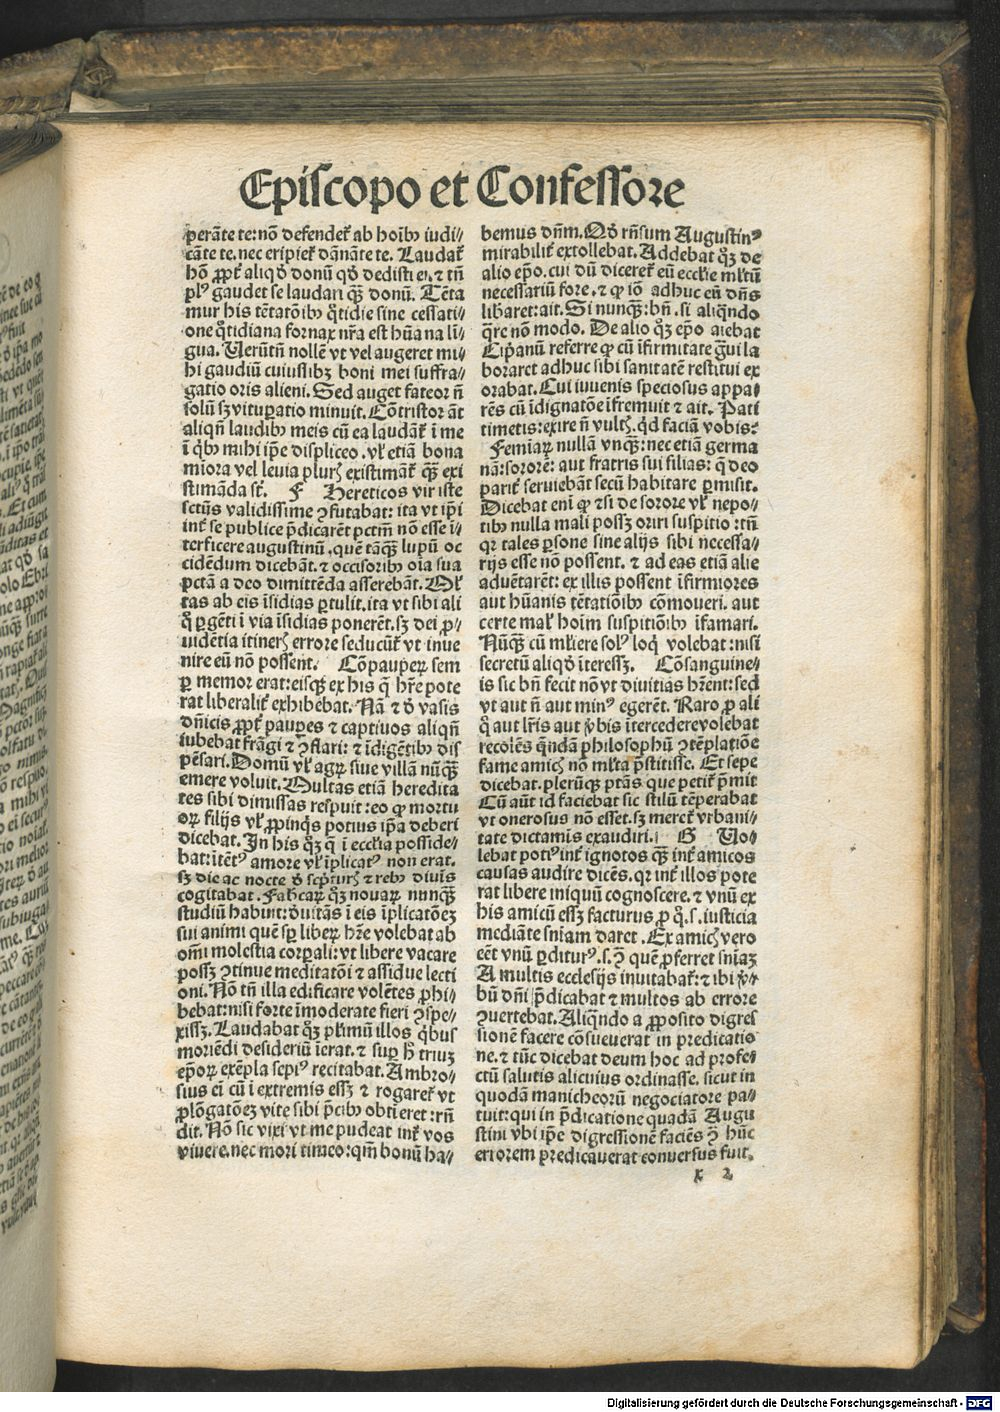 Episcopo et Confessore
perāte te: nō defendet᷑ ab hoīb⁹ iudi⸗
cāte te. nec eripiet᷑ dānāte te. Laudat᷑
hō ꝓpt᷑ aliqḋ donū qḋ dedisti ei. ⁊ tn̄
pl⁹ gaudet se laudari q̄ꝫ donū. Tēta
mur his tētatōib⁹ q̊tidie sine cessati⸗
one q̊tidiana fornax nr̄a est hūana lī⸗
gua. Uerūtn̄ nollē vt vel augeret mi⸗
hi gaudiū cuiuslibꝫ boni mei suffra⸗
gatio oris alieni. Sed auget fateor n̄
solū sꝫ vituꝑatio minuit. Cōtristor āt
aliqn̄ laudib⁹ meis cū ea laudāt᷑ ī me
ī q̊b⁹ mihi ip̄e displiceo. vl᷑ etiā bona
miora vel leuia plurꝭ existimāt᷑ q̄ꝫ exi
stimāda st̄. F Hereticos vir iste
sctūs validissime ꝯfutabat: ita vt ip̄i
int᷑ se publice p̄dicarēt pctm̄ nō esse ī⸗
terficere augustinū. quē tāq̄ꝫ lupū oc
cidēdum dicebāt. ⁊ occisorib⁹ oīa sua
pctā a deo dimittēda asserebāt. Ml᷑
tas ab eis īsidias ꝑtulit. ita vt sibi ali
q̊ ꝑgēti ī via īsidias ponerēt. sꝫ dei ꝓ⸗
uidētia itinerꝭ errore seducūt᷑ vt inue
nire eū nō possent. Cōpauperꝝ sem
ꝑ memor erat: eisqꝫ ex his q̄ hr̄e pote
rat liberalit᷑ exhibebat. Nā ⁊ ḋ vasis
dn̄icis ꝓpt᷑ pauꝑes ⁊ captiuos aliqn̄
iubebat frāgi ⁊ ꝯflari: ⁊ īdigētib⁹ dis
pēsari. Domū vl᷑ agrꝝ siue villā nūq̄ꝫ
emere voluit. Multas etiā heredita
tes sibi dimissas respuit: eo ꝙ mortu
oꝝ filijs vl᷑ ꝓpinqs potius ip̄a deberi
dicebat. In his qꝫ q̄ ī ecclia posside⸗
bat: itēt⁹ amore vl᷑ īplicat⁹ non erat.
sꝫ die ac nocte ḋ scp̄turꝭ ⁊ reb⁹ diuīs
cogitabat. Fabcarꝝ qꝫ nouarꝝ nunq̄ꝫ
studiū habuit: ḋuitās ī eis īplicatōeꝫ
sui animi quē sꝑ liberꝝ hr̄e volebat ab
om̄i molestia corꝑali: vt libere vacare
possꝫ ꝯtinue meditatōi ⁊ assidue lecti
oni. Nō tn̄ illa edificare volētes ꝓhi⸗
bebat: nisi forte īmoderate fieri ꝯspe⸗
xissꝫ. Laudabat qꝫ pl᷑imū illos q̊bus
moriēdi desideriū īerat. ⁊ suꝑ h̄ triuꝫ
ep̄orꝝ exēpla sepi⁹ recitabat. Ambro⸗
sius eī cū ī extremis essꝫ ⁊ rogaret᷑ vt
ꝓlōgatōeꝫ vite sibi p̄cib⁹ obtineret: rn̄
dit. Nō sic vixi vt me pudeat int᷑ vos
viuere. nec mori timeo: qm̄ bonū ha⸗
bemus dn̄m. Qḋ rn̄sum Augustin⁹
mirabilit᷑ extollebat. Addebat qꝫ de
alio ep̄o. cui dū diceret᷑ eū ecclie ml᷑tū
necessariū fore. ⁊ ꝙ iō adhuc eū dn̄s
libaret: ait. Si nunq̄ꝫ: bn̄. si aliqn̄do
q̄re nō modo. De alio qꝫ ep̄o aiebat
Cip̄anū referre ꝙ cū īfirmitate g̊ui la
boraret adhuc sibi sanitatē restitui ex
orabat. Cui iuuenis speciosus appa⸗
rēs cū īdignatōe īfremuit ⁊ ait. Pati
timetis: exire n̄ vultꝭ. qd faciā vobis?
Femiarꝝ nullā vnq̄ꝫ: nec etiam germa
nā: sororē: aut fratris sui filias: q̄ deo
parit᷑ seruiebāt secū habitare ꝑmisit.
Dicebat enī ꝙ ⁊si de sorore vl᷑ nepo⸗
tib⁹ nulla mali possꝫ oriri suspitio: tn̄
qr tales ꝑsone sine alijs sibi necessa⸗
rijs esse nō possent. ⁊ ad eas etiā alie
aduētarēt: ex illis possent īfirmiores
aut hūanis tētatiōib⁹ cōmoueri. aut
certe mal᷑ hoīm suspitiōib⁹ īfamari.
Nūq̄ꝫ cū ml᷑iere sol⁹ loq̄ volebat: nisi
secretū aliqḋ īteressꝫ. Cōsanguine⸗
is sic bn̄ fecit nō vt diuitias hr̄ent: sed
vt aut n̄ aut min⁹ egerēt. Raro ꝓ ali
q̊ aut lr̄is aut v̄bis īterceder evolebat
recolēs q̄ndā philosophū ꝯtēplatiōe
fame amicꝭ nō ml᷑ta p̄stitisse. Et sepe
dicebat. plerūqꝫ ptās que petit᷑ p̄mit
Cū aūt id faciebat sic stilū tēperabat
vt onerosus nō esset. sꝫ meret᷑ vrbani⸗
tate dictamīs exaudiri. G Uo⸗
lebat poti⁹ int᷑ ignotos q̄ꝫ int᷑ amicos
causas audire dicēs. qr int᷑ illos pote
rat libere iniquū cognoscere. ⁊ vnū ex
his amicū essꝫ facturus ꝓ q̊. s. iusticia
mediāte sniam daret. Ex amicꝭ vero
eēt vnū ꝑditur⁹. s. ꝯ quē ꝓferret sniaꝫ
A multis ecclesijs inuitabat᷑: ⁊ ibi v̄⸗
bū dn̄i p̄dicabat ⁊ multos ab errore
ꝯuertebat. Aliqn̄do a ꝓposito digres
sionē facere cōsueuerat in predicatio
ne. ⁊ tūc dicebat deum hoc ad profe⸗
ctū salutis alicuius ordinasse. sicut in
quodā manicheorū negociatore pa⸗
tuit: qui in p̄dicatione quadā Augu
stini vbi ip̄e digressionē faciēs ꝯ hūc
erīorem predicauerat conuersus fuit.
x 2
Digitalisierung gefördert durch die Deutsche Forschungsgemeinschaft - DFG